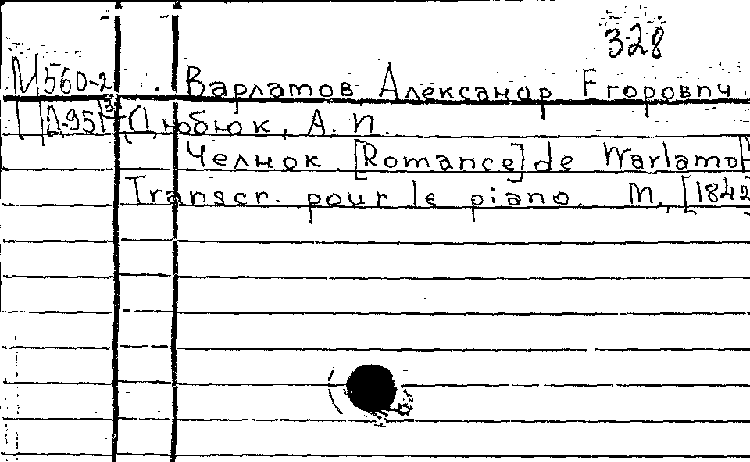 328
М 560-2 Варламов Александр Егорович
Д-951 (Дюбюк, А. И.
Челнок [Romance] de Warlamof
Transcr. pour le piano. М., [1842